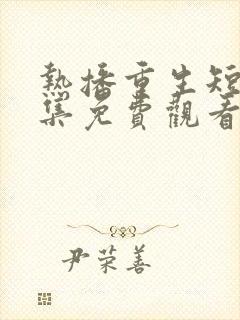 熱播重生短
集免費觀看
尹荣善